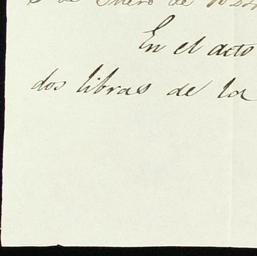 de Enero de
En el acto
dos libras de la